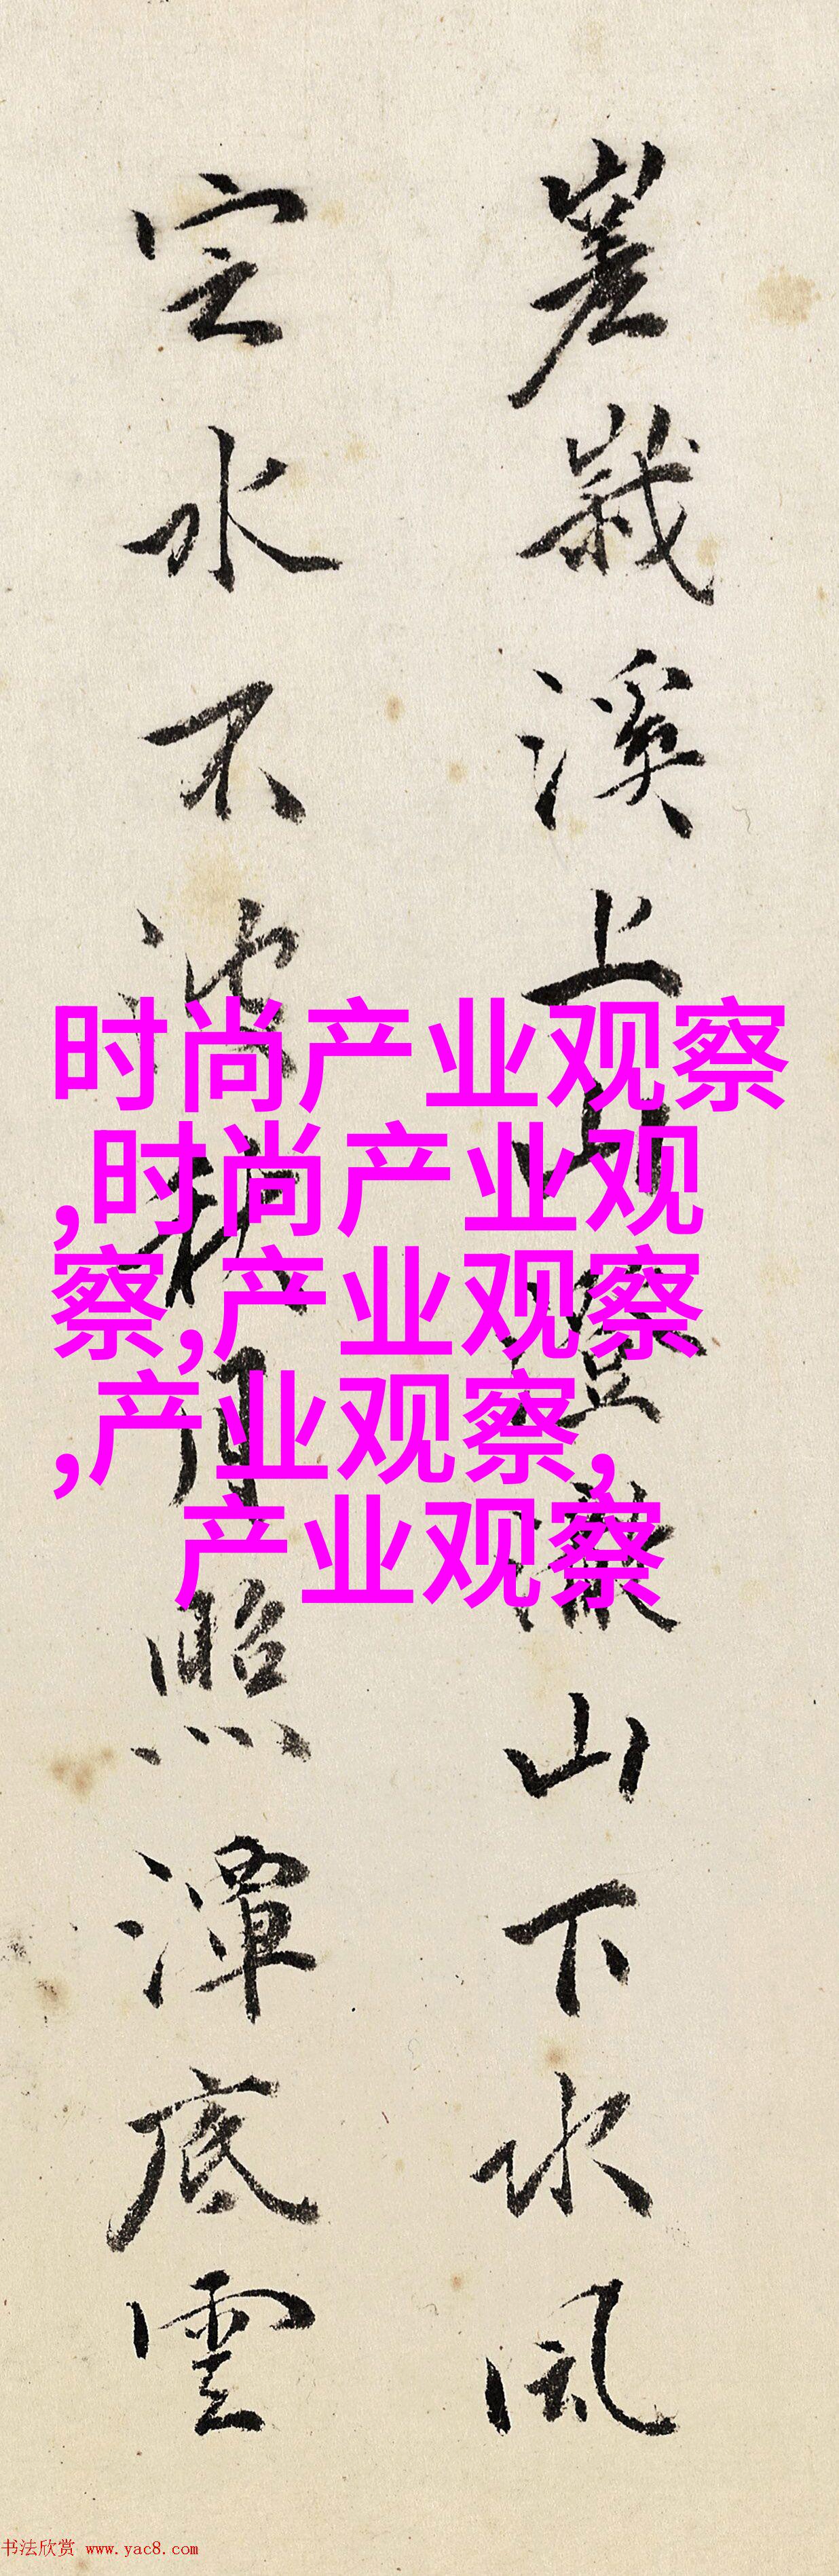 嵳峩溪上山登潋山下水風
定水不
照潭底雲
时尚产业观察
,时尚产业观
察,产业观察
,产业观察,
产业观察
书法欣赏 www.yac8.com